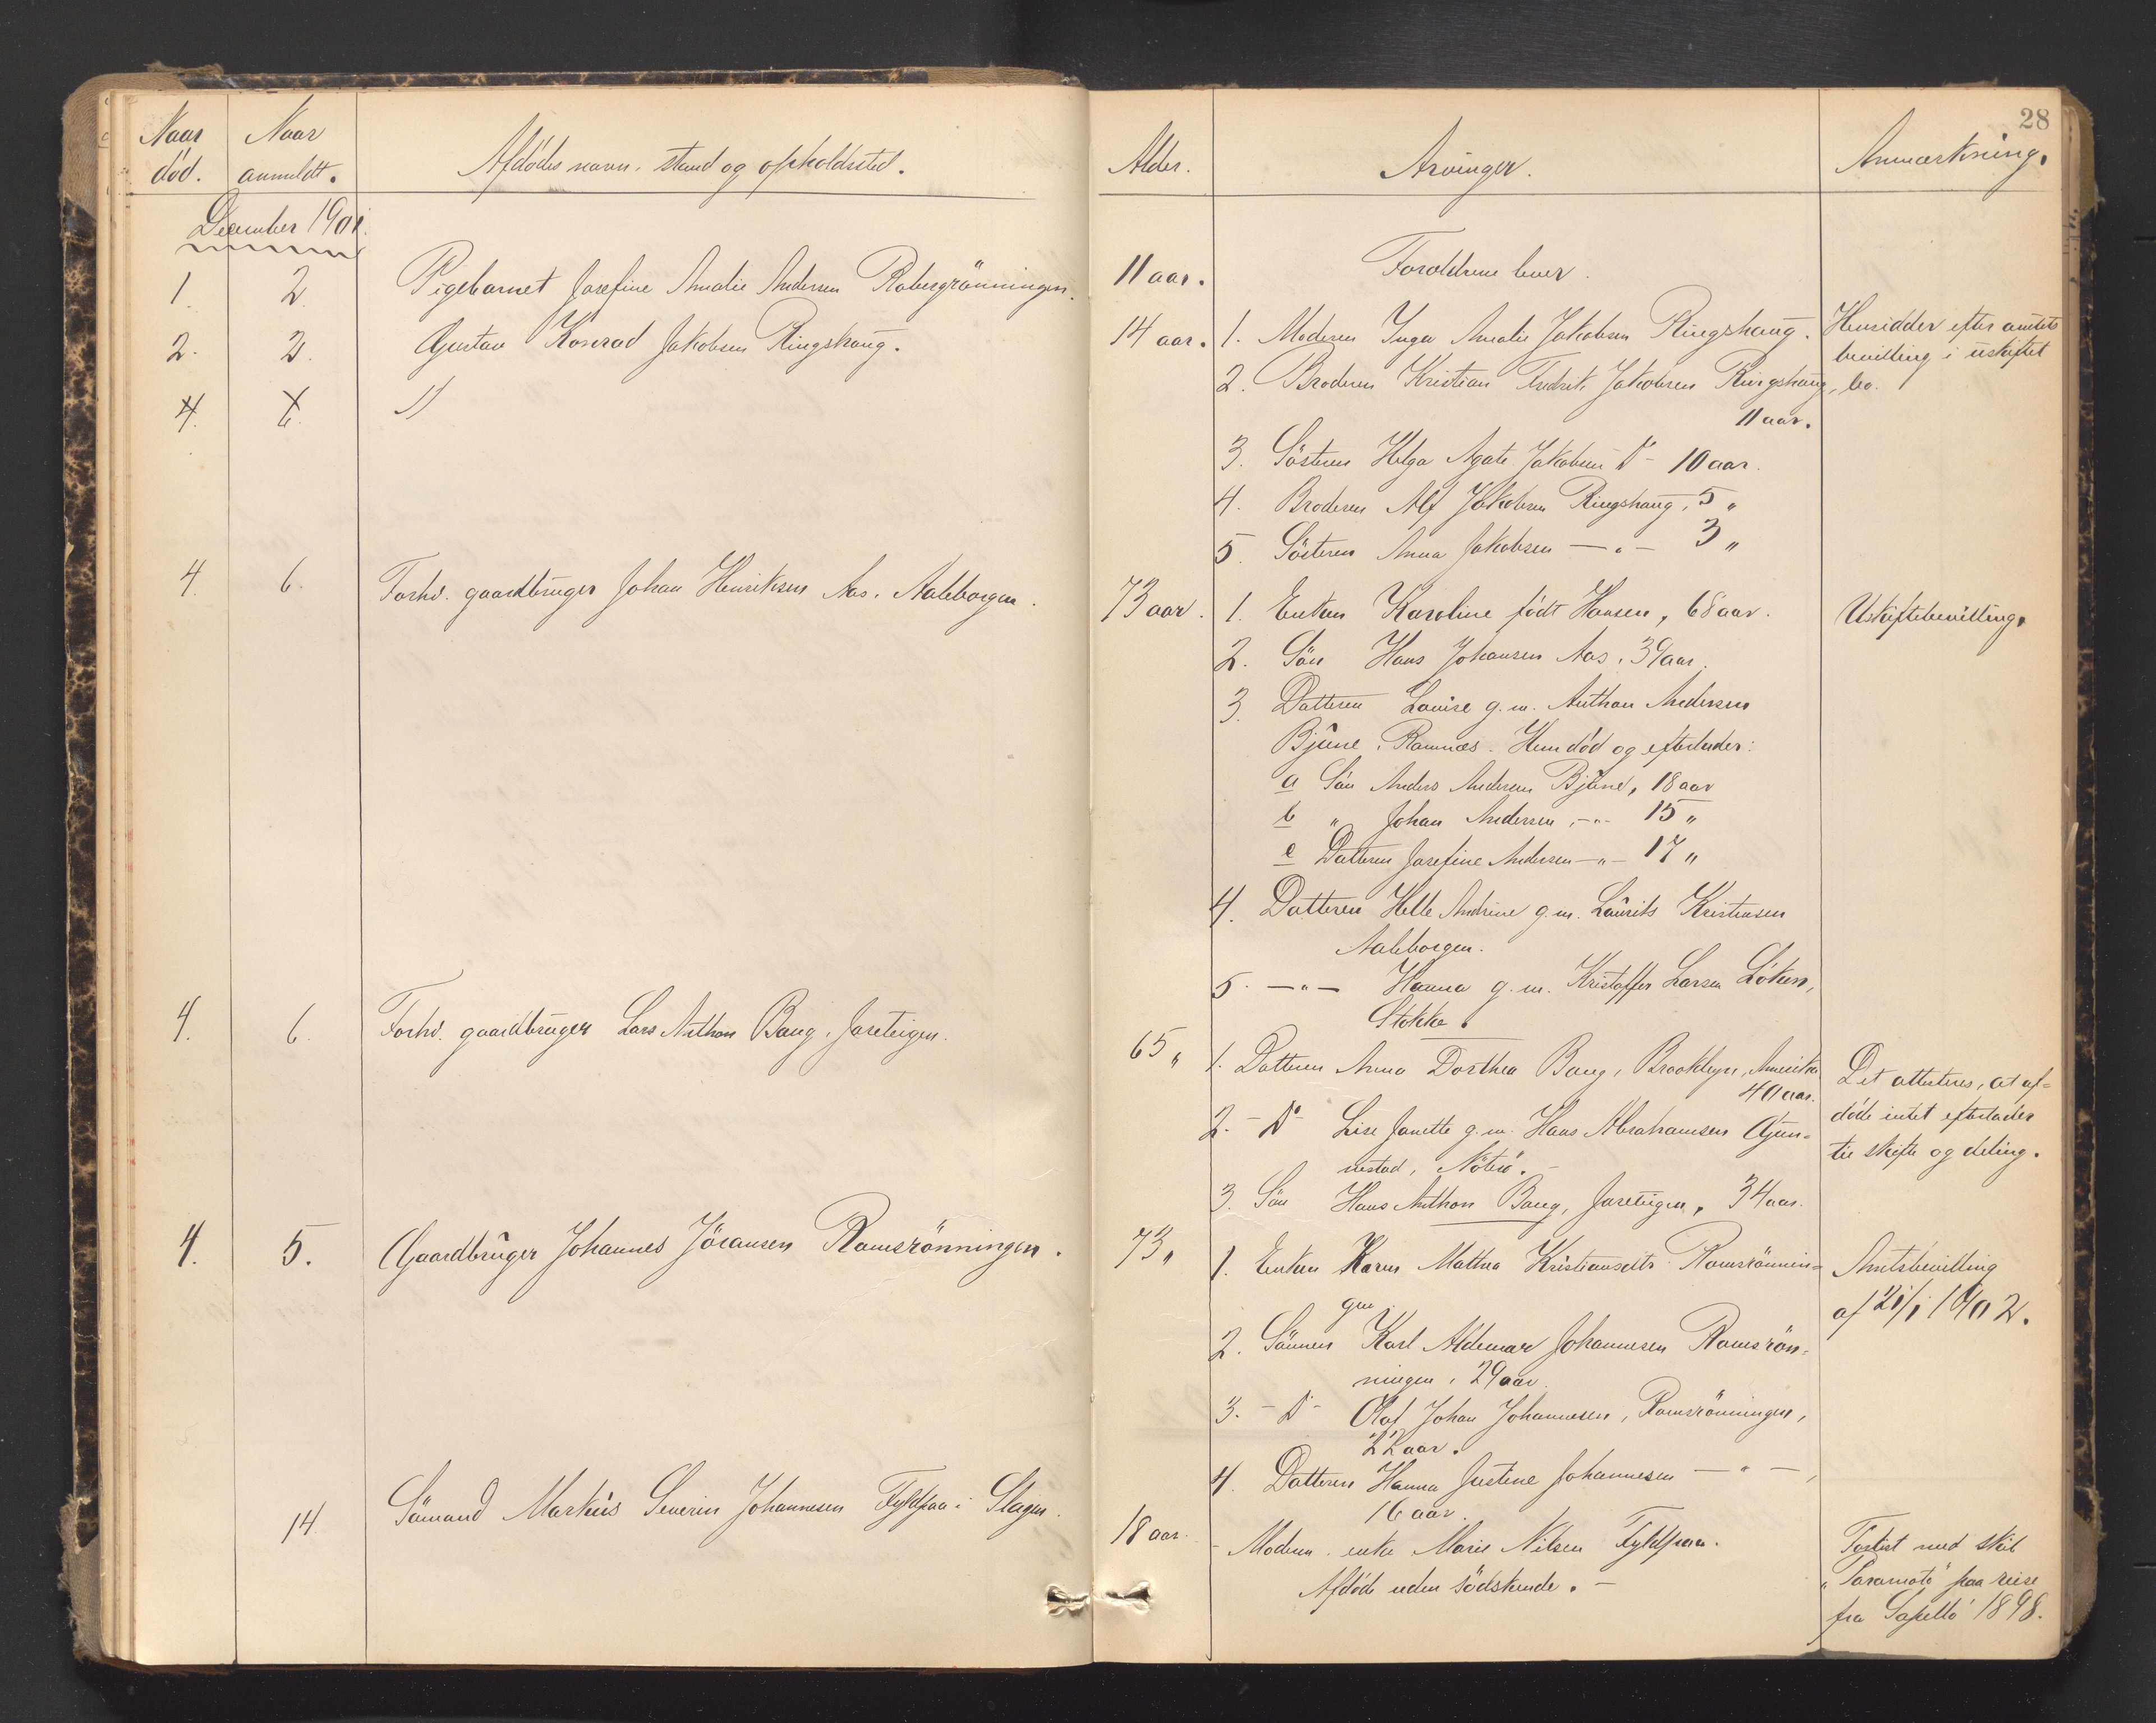 28
Naar død.
Naar anmeldt.
Afdødes navn, stand og opholdssted.
Alder.
Arvinger.
Anmærkning.
December 1901.
1. 2. Pigebarnet Josefine Amalie Andersen Robergrönningen. 11 aar. Forældrene lever.
2. 3. Gustav Konrad Jakobsen Ringshaug. 14 aar. 1. Moderen Inga Amalie Jakobsen Ringshaug. Hensidder efter amtets
bevilling i uskiftet
2. Broderen Kristian Fredrik Jakobsen Ringshaug, bo.
11 aar.
4. 6.
3. Sösteren Helga Agate Jakobsen D - 10 aar.
4. Broderen Alf Jakobsen Ringshaug, 5 "
5. Sösteren Anna Jakobsen — " — 3 "
4. 6. Forhv. gaardbruger Johan Henriksen Aas, Aaleborgen. 73 aar. 1. Enken Karoline födt Hansen, 68 aar. Uskiftebevilling.
2. Sön Hans Johansen Aas, 39 aar.
3. Datteren Lovise g. m. Anthon Andersen
Bjune, Ramnæs. Hun död og efterlader:
a Sön Anders Andersen Bjune, 18 aar
b " Johan Andersen, - " - 15 "
c Datteren Josefine Andersen — " — 17 "
4. Datteren Helle Andrine g. m. Laurits Kristensen
Aaleborgen.
5. — " — Hanna g. m. Kristoffer Larsen Löken,
Stokke.
4. 6. Forhv. gaardbruger Lars Anthon Baug, Jareteigen. 65 " 1. Datteren Anna Dorthea Baug, Brooklyn, Amerika
40 aar.
Det attesteres, at af-
döde intet efterlader
til skifte og deling.
2. - D - Lise Janette g. m. Hans Abrahamsen Gun-
nestad, Nöterö. -
3. Sön Hans Anthon Baug, Jareteigen, 34 aar.
4. 5. Gaardbruger Johannes Jöransen Ramsrönningen. 73 " 1. Enken Karen Mathea Kristiansdtr Ramsrönnin-
gen.
Amtsbevilling
af 21/1 1902.
2. Sönnen Karl Aldemar Johannesen Ramsrön-
ningen, 29 aar.
3. - D - Olaf Johan Johannesen, Ramsrönningen,
22 aar.
4. Datteren Hanna Justine Johannesen — " —,
16 aar.
14. Sömand Markus Severin Johannesen Fyldpaa i Slagen. 18 aar. - Moderen enke Marie Nilsen Fyldpaa.
Afdöde uden södskende. -
Forlist med skib
paa reise
fra 1898.